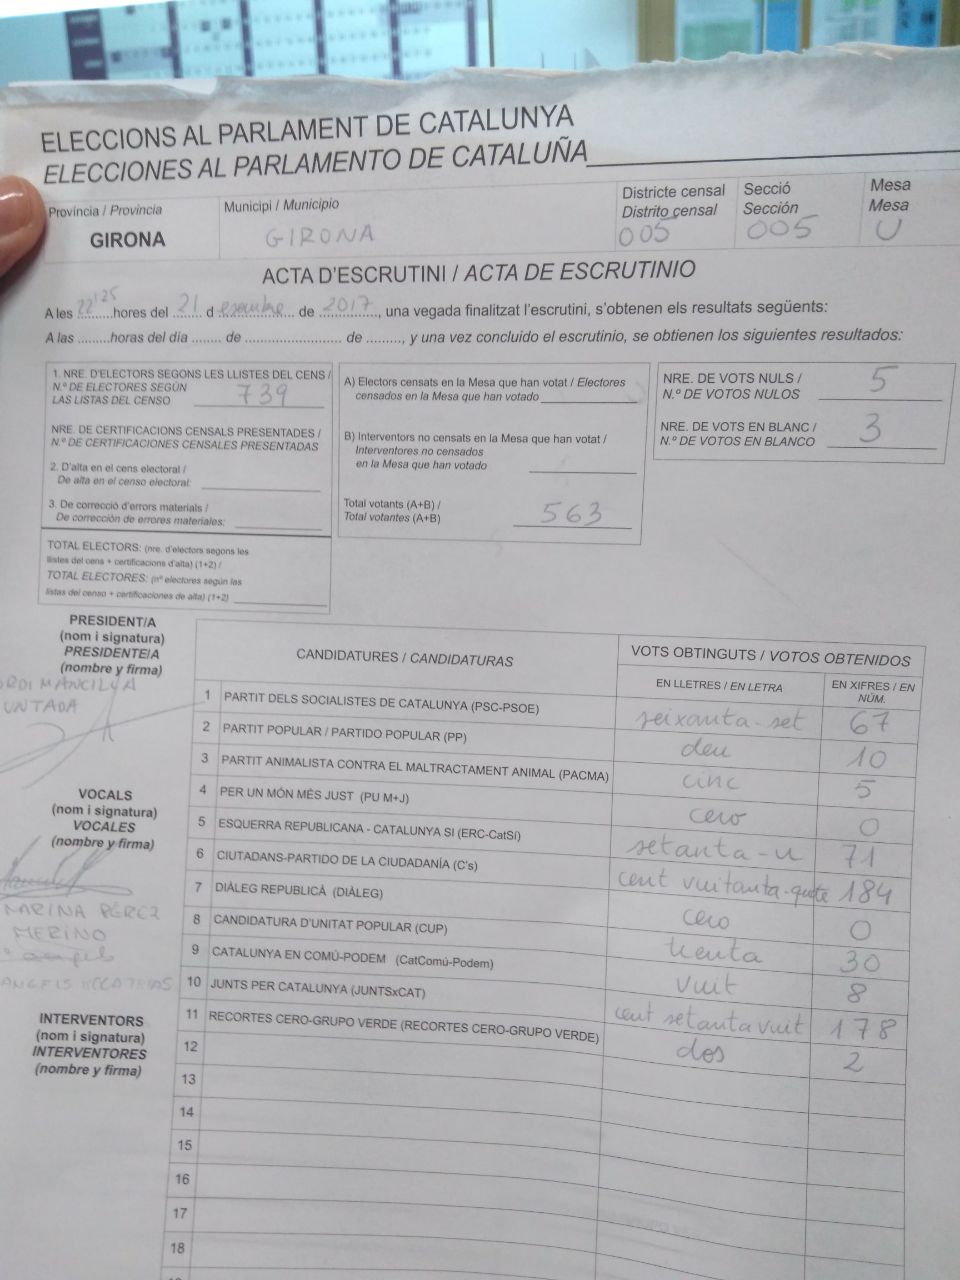 ELECCIONS AL PARLAMENT DE CATALUNYA
ELECCIONES AL PARLAMENTO DE CATALUÑA
Província / Provincia
GIRONA
Municipi / Municipio
GIRONA
Districte censal
Distrito censal
005
Secció
Sección
005
Mesa
Mesa
U
ACTA D'ESCRUTINI / ACTA DE ESCRUTINIO
A les 22'25 hores del 21 d esembre de 2017, una vegada finalitzat l'escrutini, s'obtenen els resultats següents:
A las .........horas del día ........ de ......................... de ........., y una vez concluido el escrutinio, se obtienen los siguientes resultados:
1. NRE. D'ELECTORS SEGONS LES LLISTES DEL CENS /
N.º DE ELECTORES SEGÚN
LAS LISTAS DEL CENSO 739
NRE. DE CERTIFICACIONS CENSALS PRESENTADES /
N.º DE CERTIFICACIONES CENSALES PRESENTADAS
2. D'alta en el cens electoral /
De alta en el censo electoral:
3. De correcció d'errors materials /
De corrección de errores materiales:
TOTAL ELECTORS: (nre. d'electors segons les
llistes del cens + certificacions d'alta) (1+2) /
TOTAL ELECTORES: (nº electores según las
listas del censo + certificaciones de alta) (1+2)
A) Electors censats en la Mesa que han votat / Electores
censados en la Mesa que han votado
B) Interventors no censats en la Mesa que han votat /
Interventores no censados
en la Mesa que han votado
Total votants (A+B) /
Total votantes (A+B) 563
NRE. DE VOTS NULS /
N.º DE VOTOS NULOS 5
NRE. DE VOTS EN BLANC /
N.º DE VOTOS EN BLANCO 3
PRESIDENT/A
(nom i signatura)
PRESIDENTE/A
(nombre y firma)
ORDI MANCILLA
UNTADA
VOCALS
(nom i signatura)
VOCALES
(nombre y firma)
MARINA PÉREZ
MERINO
INTERVENTORS
(nom i signatura)
INTERVENTORES
(nombre y firma)
CANDIDATURES / CANDIDATURAS
VOTS OBTINGUTS / VOTOS OBTENIDOS
EN LLETRES / EN LETRA
EN XIFRES / EN
NÚM.
1 PARTIT DELS SOCIALISTES DE CATALUNYA (PSC-PSOE) seixanta-set 67
2 PARTIT POPULAR / PARTIDO POPULAR (PP) deu 10
3 PARTIT ANIMALISTA CONTRA EL MALTRACTAMENT ANIMAL (PACMA) cinc 5
4 PER UN MÓN MÉS JUST (PU M+J) cero 0
5 ESQUERRA REPUBLICANA - CATALUNYA SI (ERC-CatSí) setanta-u 71
6 CIUTADANS-PARTIDO DE LA CIUDADANÍA (C's) cent vuitanta-quatre 184
7 DIÀLEG REPUBLICÀ (DIÀLEG) cero 0
8 CANDIDATURA D'UNITAT POPULAR (CUP) trenta 30
9 CATALUNYA EN COMÚ-PODEM (CatComú-Podem) vuit 8
10 JUNTS PER CATALUNYA (JUNTSxCAT) cent setanta vuit 178
11 RECORTES CERO-GRUPO VERDE (RECORTES CERO-GRUPO VERDE) dos 2
12
13
14
15
16
17
18